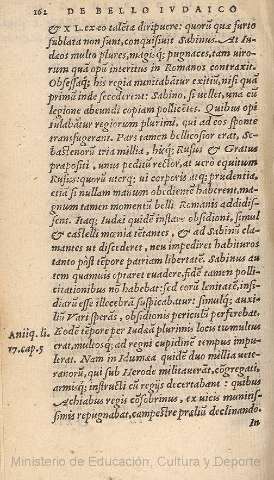 162 DE BELLO IVDAICO
& XL. ex eo talēta diripuere: quorū quæ furto
sublata non sunt, conquisiuit Sabinus. At Iu-
dæos multo plures, magisq; pugnaces, tam uiro-
rum quàm opū interitus in Romanos contraxit.
Obsessaq; his regia minitabātur exitiū, nisi quā
primū inde secederent: Sabino, si uellet, una cū
legione abeundi copiam polliceri. Quibus opi-
tulabātur regiorum plurimi, qui ad eos sponte
transfugerant. Pars tamen bellicosior erat, Se-
bastenorū tria millia, hisq; Rufus & Gratus
præpositi, unus peditū rector, at uerò equitum
Rufus: quorū uterq; ui corporis atq; prudentia,
etiā si nullam manum obediētē haberent, mag-
num tamen momentū belli Romanis addidis-
sent. Itaq; Iudæi quidē instare obsidioni, simul
& castelli mœnia tētantes, & ad Sabinū cla-
mantes ut discederet, neu impediret habituros
tanto pòst tēpore patriam libertatē. Sabinus au
tem quamuis optaret euadere, fidē tamen polli-
citationibus nō habebat: sed eorū lenitatē, insi-
diarū esse illecebrā suspicabatur: simulq; auxi-
liū Vari sperās, obsidionis periculū perferebat.
Antiq. li.
17. cap. 5
Eodē tēpore per Iudæā plurimis locis tumultus
erat, multosq; ad regni cupidinē tempus impu-
lerat. Nam in Idumæa quidē duo millia uete-
ranorū, qui sub Herode militauerāt, cōgregati,
armisq; instructi cū regijs decertabant: quibus
Achiabus regis cōsobrinus, ex uicis munitis-
simis repugnabat, campestre prælium declinando.
In
Ministerio de Educación, Cultura y Deporte